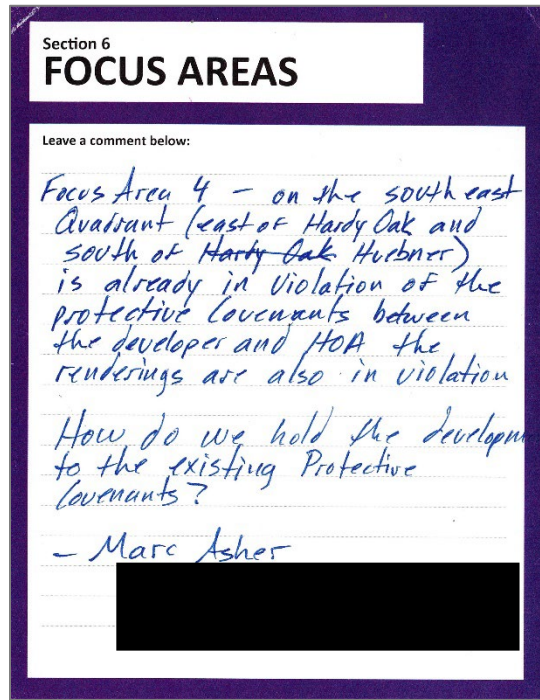 Section 6
FOCUS AREAS
Leave a comment below:
Focus Area 4 – on the south east
Quadrant (east of Hardy Oak and
south of Hardy Oak Huebner)
is already in Violation of the
protective Covenants between
the developer and HOA the
renderings are also in violation
How do we hold the developm
to the existing Protective
Covenants?
– Marc Asher